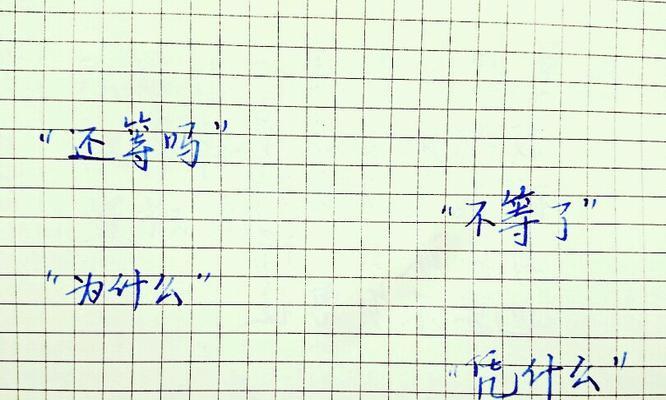 “还等吗”
“不等了”
“为什么”
“凭什么”